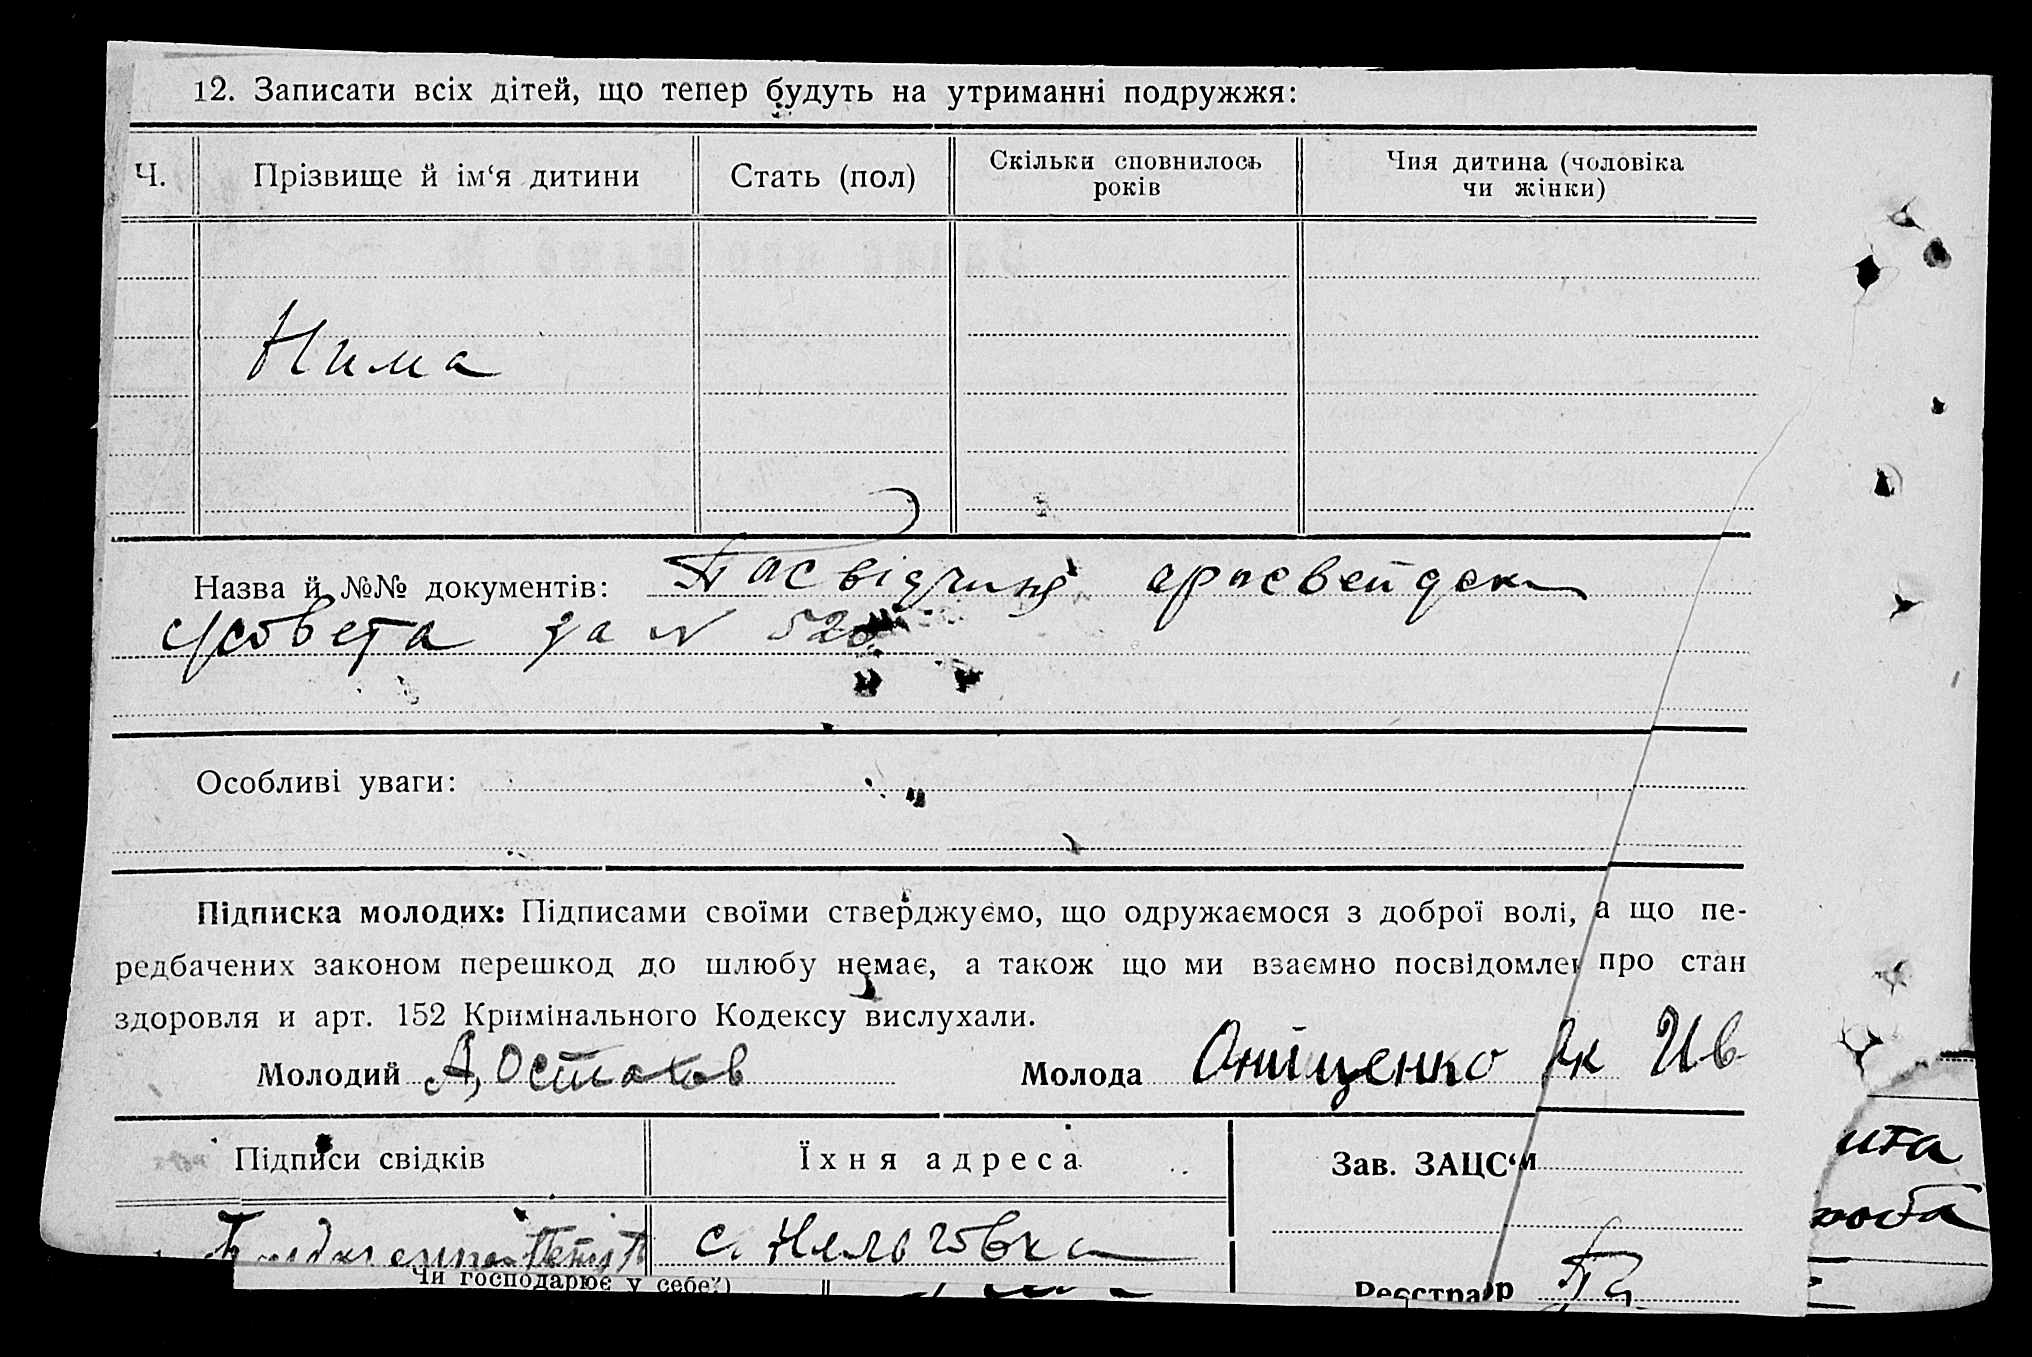 12. Записати всіх дітей, що тепер будуть на утриманні подружжя:
Ч. Прізвище й ім‘я дитини Стать (пол) Скільки сповнилось років Чия дитина (чоловіка чи жінки)
Нима
Назва й №№ документів: Посвідчинь
за N 520
Особливі уваги:
Підписка молодих: Підписами своїми стверджуємо, що одружаємося з доброї волі, а що пе-
редбачених законом перешкод до шлюбу немає, а також що ми взаємно посвідомлен про стан
здоровля и арт. 152 Кримінального Кодексу вислухали.
Молодий А, Остахов Молода Оніщенко Ив
Підписи свідків Їхня адреса Зав. ЗАЦС‘м
с.
Чи господарює у себе?)
Реєстратор